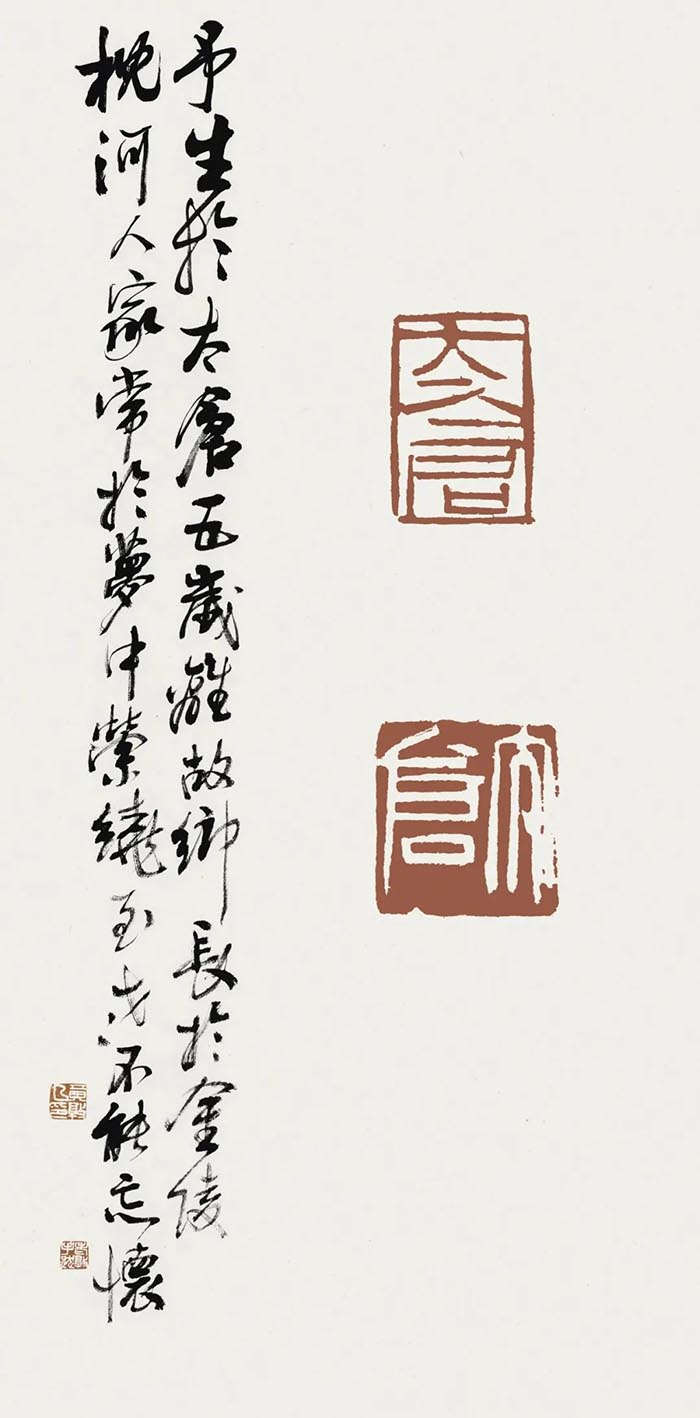 太倉
予生於太倉五歲離故鄉長於金陵
枕河人家常於夢中縈繞至不能忘懷